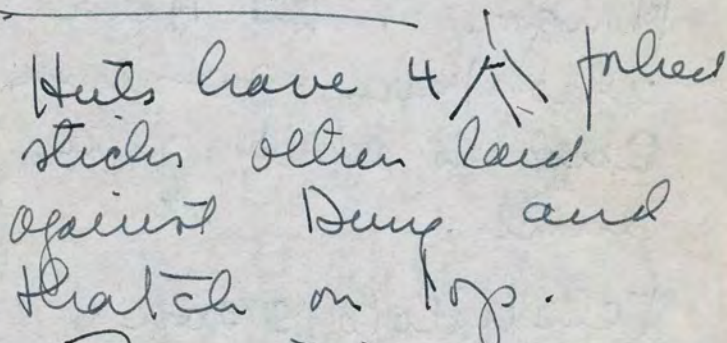 Huts have 4 forked
sticks others laid
against Dung and
thatch on top.